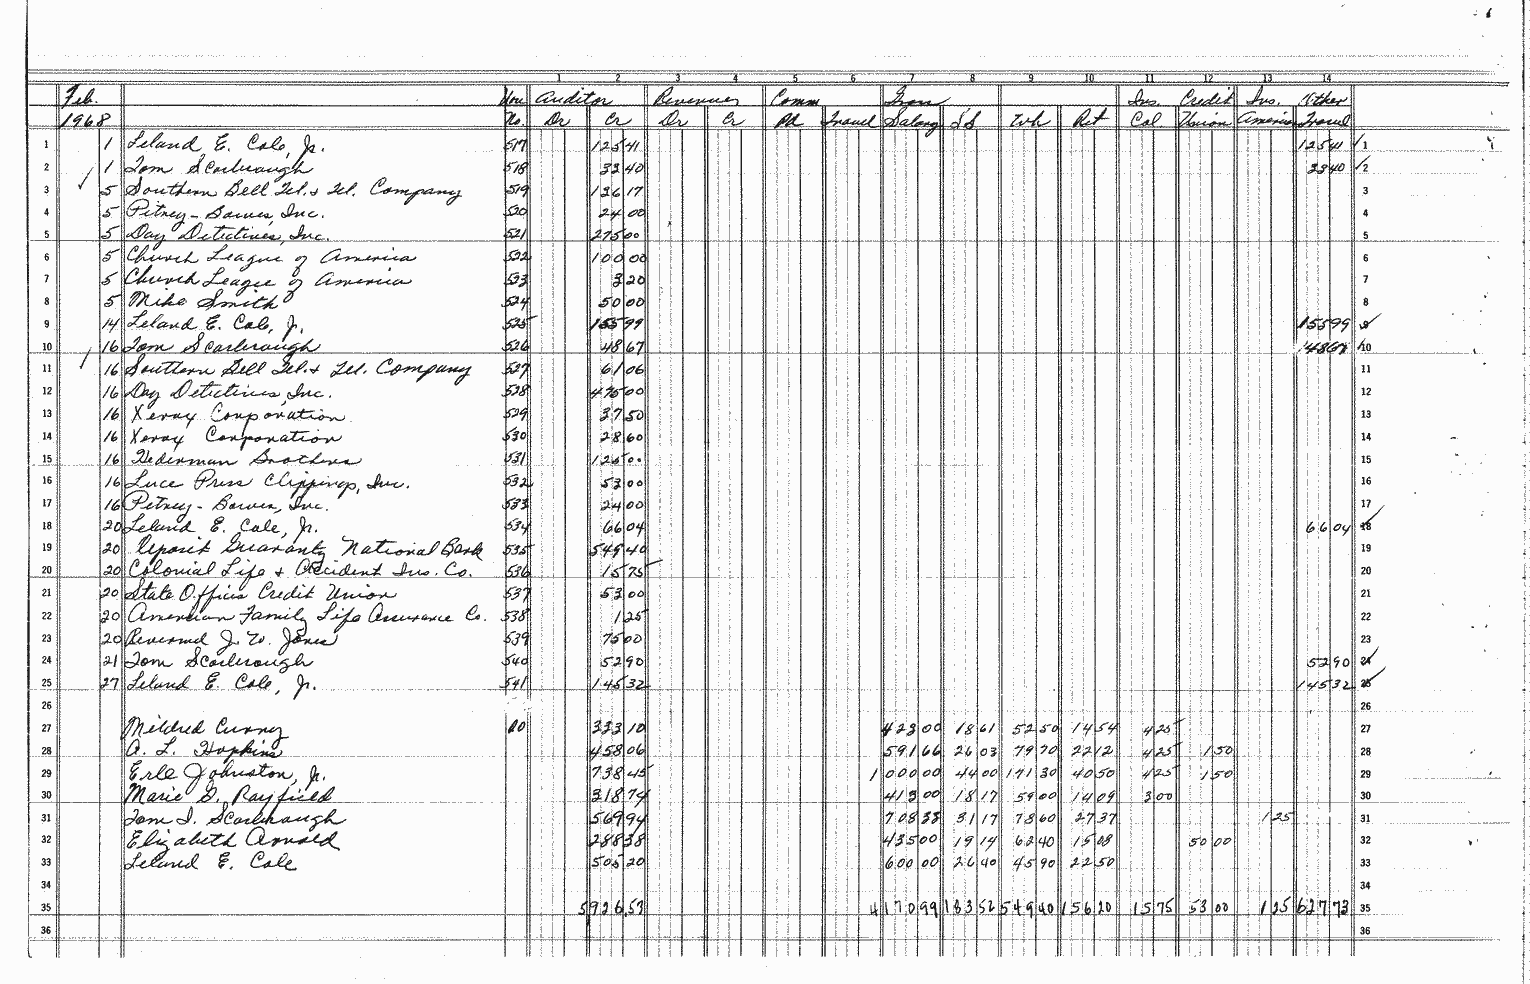 1 2 3 4 5 6 7 8 9 10 11 12 13 14
Feb. Auditor Revenues Comm Gross Ins. Credit Ins. Other
1968 No. Dr Cr Dr Cr Pd Travel Salary SS Wh Ret Col Union American Travel
1 1 Leland E. Cole, Jr. 517 125 41 125 41 1
2 1 Tom Scarbrough 518 33 40 33 40 2
3 5 Southern Bell Tel. & Tel. Company 519 136 17 3
4 5 Pitney-Bowes, Inc. 520 24 00 4
5 5 Day Detectives, Inc. 521 275 00 5
6 5 Church League of America 522 100 00 6
7 5 Church League of America 523 3 20 7
8 5 Mike Smith 524 50 00 8
9 14 Leland E. Cole, Jr. 525 155 99 155 99 9
10 16 Tom Scarbrough 526 48 67 48 67 10
11 16 Southern Bell Tel. & Tel. Company 527 61 06 11
12 16 Day Detectives, Inc. 528 475 00 12
13 16 Xerox Corporation 529 37 50 13
14 16 Xerox Corporation 530 28 60 14
15 16 Hederman Brothers 531 126 00 15
16 16 Luce Press Clippings, Inc. 532 53 00 16
17 16 Pitney-Bowes, Inc. 533 24 00 17
18 20 Leland E. Cole, Jr. 534 66 04 66 04 18
19 20 Deposit Guaranty National Bank 535 549 40 19
20 20 Colonial Life & Accident Ins. Co. 536 15 75 20
21 20 State Offices Credit Union 537 53 00 21
22 20 American Family Life Assurance Co. 538 1 25 22
23 20 Reverend J. W. Jones 539 75 00 23
24 21 Tom Scarbrough 540 52 90 52 90 24
25 27 Leland E. Cole, Jr. 541 145 32 145 32 25
26 26
27 Mildred Curry 333 10 423 00 18 61 52 50 14 54 4 25 27
28 A. L. Hopkins 458 06 591 66 26 03 79 70 22 12 4 25 1 50 28
29 Erle Johnston, Jr. 738 45 1 000 00 44 00 171 30 40 50 4 25 1 50 29
30 Marie G. Rayfield 318 74 413 00 18 17 59 00 14 09 3 00 30
31 Tom I. Scarbrough 569 94 708 33 31 17 78 60 27 37 1 25 31
32 Elizabeth Arnold 288 38 435 00 19 14 62 40 15 08 50 00 32
33 Leland E. Cole 505 20 600 00 26 40 45 90 22 50 33
34
35 5 926 53 4 170 99 183 52 549 40 156 20 15 75 53 00 1 25 627 73 35
36 36